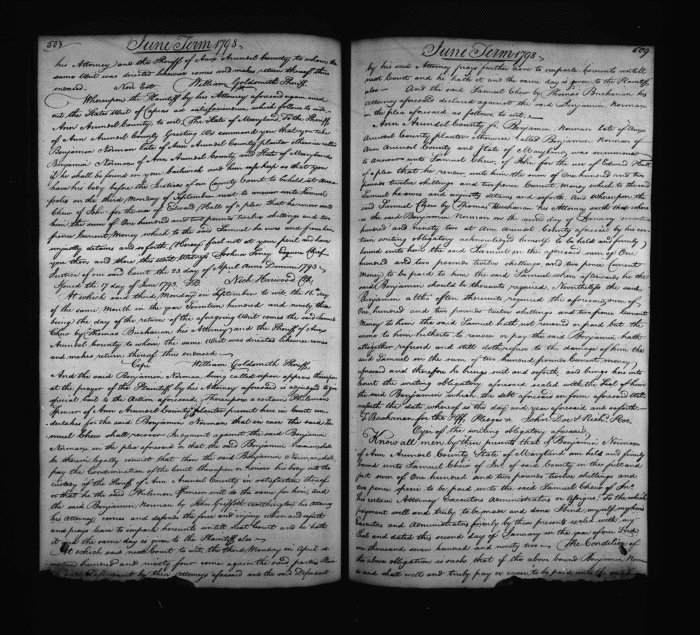 508 June Term 1793.
his Attorney and the Sheriff of Ann Arundel County to whom the
same Writ was directed likewise comes and makes return thereof thus
endorsed Non Est William Goldsmith Sheriff
Whereupon the Plaintiff by his Attorney aforesaid again sued
out the States Writ of Capias ad satisfaciendum which follows to wit,
Ann Arundel County, to wit, The State of Maryland To the Sheriff
of Ann Arundel County Greeting We command you that you take
Benjamin Norman late of Ann Arundel County planter otherwise called
Benjamin Norman of Ann Arundel County and State of Maryland
if he shall be found in your bailwick and him safe keep so that you
have his body before the Justices of our County Court to be held at Anna
polis on the third Monday of September next to answer unto Samuel
Chew of John for the use of Edward Hall of a plea that he render unto
him the sum of One hundred and two pounds twelve shillings and two
pence Current Money which to the said Samuel he owes and from him
unjustly detains and so forth, Hereof fail not at your peril, and have
you then and there this Writ Witness Joshua Esquire Chief
Justice of our said Court the 23 day of April Anno Domini 1793.
Issued the 17 day of June 1793. Nich Harwood Clk.
At which said third Monday in September to wit, the 16 day
of the same Month in the year seventeen hundred and ninety three
being the day of the return of the aforegoing Writ comes the said Samuel
Chew by Thomas Buchanan his Attorney and the Sheriff of Ann
Arundel County to whom the same Writ was directed likewise comes
and makes return thereof thus endorsed
Cepi William Goldsmith Sheriff,
And the said Benjamin Norman being called upon appears thereupon
at the prayer of the Plaintiff by his Attorney aforesaid is adjudged to give
special bail to the Action aforesaid, Whereupon a certain Philemon
Spencer of Ann Arundel County planter present here in Court un
dertakes for the said Benjamin Norman that in case the said Sa
muel Chew shall recover Judgment against the said Benjamin
Norman in the plea aforesaid or that the said Benjamin Norman shall
be therein legally convict that then the said Benjamin Norman shall
pay the Condemnation of the Court thereupon or render his body into the
custody of the Sheriff of Ann Arundel County in satisfaction thereof
or that he the said Philemon Spencer will do the same for him, and
the said Benjamin Norman by John Griffith Worthington his Attorney
his Attorney comes and defends the force and injury when and so forth
and prays leave to imparle hereunto until next Court and he hath
it and the same day is given to the Plaintiff also
At which said next Court to wit, the third Monday in April se
venteen hundred and ninety four come again the said parties
by their Attorneys aforesaid and the said Defendant
June Term 1793. 509
by his said Attorney prays further leave to imparle hereunto until
next Court and he hath it and the same day is given to the Plaintiff
also And the said Samuel Chew by Thomas Buchanan his
Attorney aforesaid declared against the said Benjamin Norman
in the plea aforesaid as follows to wit.
Ann Arundel County ss Benjamin Norman late of Ann
Arundel County planter otherwise called Benjamin Norman of
Ann Arundel County and State of Maryland was summoned
to answer unto Samuel Chew of John for the use of Edward Hall
of a plea that he render unto him the sum of One hundred and two
pounds twelve shillings and two pence Current Money which to the said
Samuel he owes and unjustly detains and so forth, And whereupon the
said Samuel Chew by Thomas Buchanan his Attorney saith that whereas
the said Benjamin Norman on the second day of January seventeen
hundred and ninety two at Ann Arundel County aforesaid by his cer
tain writing obligatory acknowledged himself to be held and firmly
bound unto him the said Samuel in the aforesaid sum of One
hundred and two pounds twelve shillings and two pence Current
Money to be paid to him the said Samuel when afterwards he the
said Benjamin should be thereunto required, Nevertheless the said
Benjamin altho' often thereunto required the aforesaid sum of
One hundred and two pounds twelve shillings and two pence Current
Money to him the said Samuel hath not rendered or paid but the
same to him or to render or pay the said Benjamin hath
altogether refused and still doth refuse to the damage of him the
said Samuel in the sum of two hundred pounds Current money
aforesaid and therefore he brings suit and so forth, and brings here into
Court the writing obligatory aforesaid sealed with the seal of him
the said Benjamin which the debt aforesaid in form aforesaid
the date whereof is the day and year aforesaid and so forth
T. Buchanan for the Plff. Pledges &c John Doe & Rich. Roe.
Copy of the writing obligatory aforesaid,
Know all men by these presents that I Benjamin Norman
of Ann Arundel County State of Maryland am held and firmly
bound unto Samuel Chew of Jno of said County in the full and
just sum of One hundred and two pounds twelve shillings and
two pence Current money to be paid unto the said Samuel Chew of Jno
his certain Attorney Executors Administrators or Assigns, To the which
payment well and truly to be made and done I bind myself my heirs
Executors and Administrators firmly by these presents sealed with my
seal and dated this second day of January in the year of our Lord
one thousand seven hundred and ninety two The Condition of
the above obligation is such that if the above bound Benjamin Norman
shall well and truly pay or cause to be paid unto the said